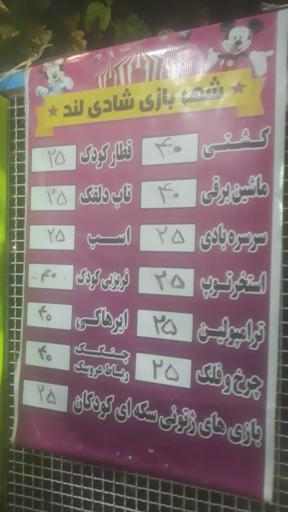 شهر بازی شادی لند
کشتی ۴۰ قطار کودک ۲۵
ماشین برقی ۴۰ تاب دلقک ۲۵
سرسره بادی ۲۵ اسب ۲۵
استخر توپ ۲۵ فریزبی کودک ۴۰
ترامپولین ۲۵ ایرهاکی ۴۰
چرخ و فلک ۲۵ چنگک رباط عروسک ۴۰
بازی های ژتونی سکه ای کودکان ۲۵